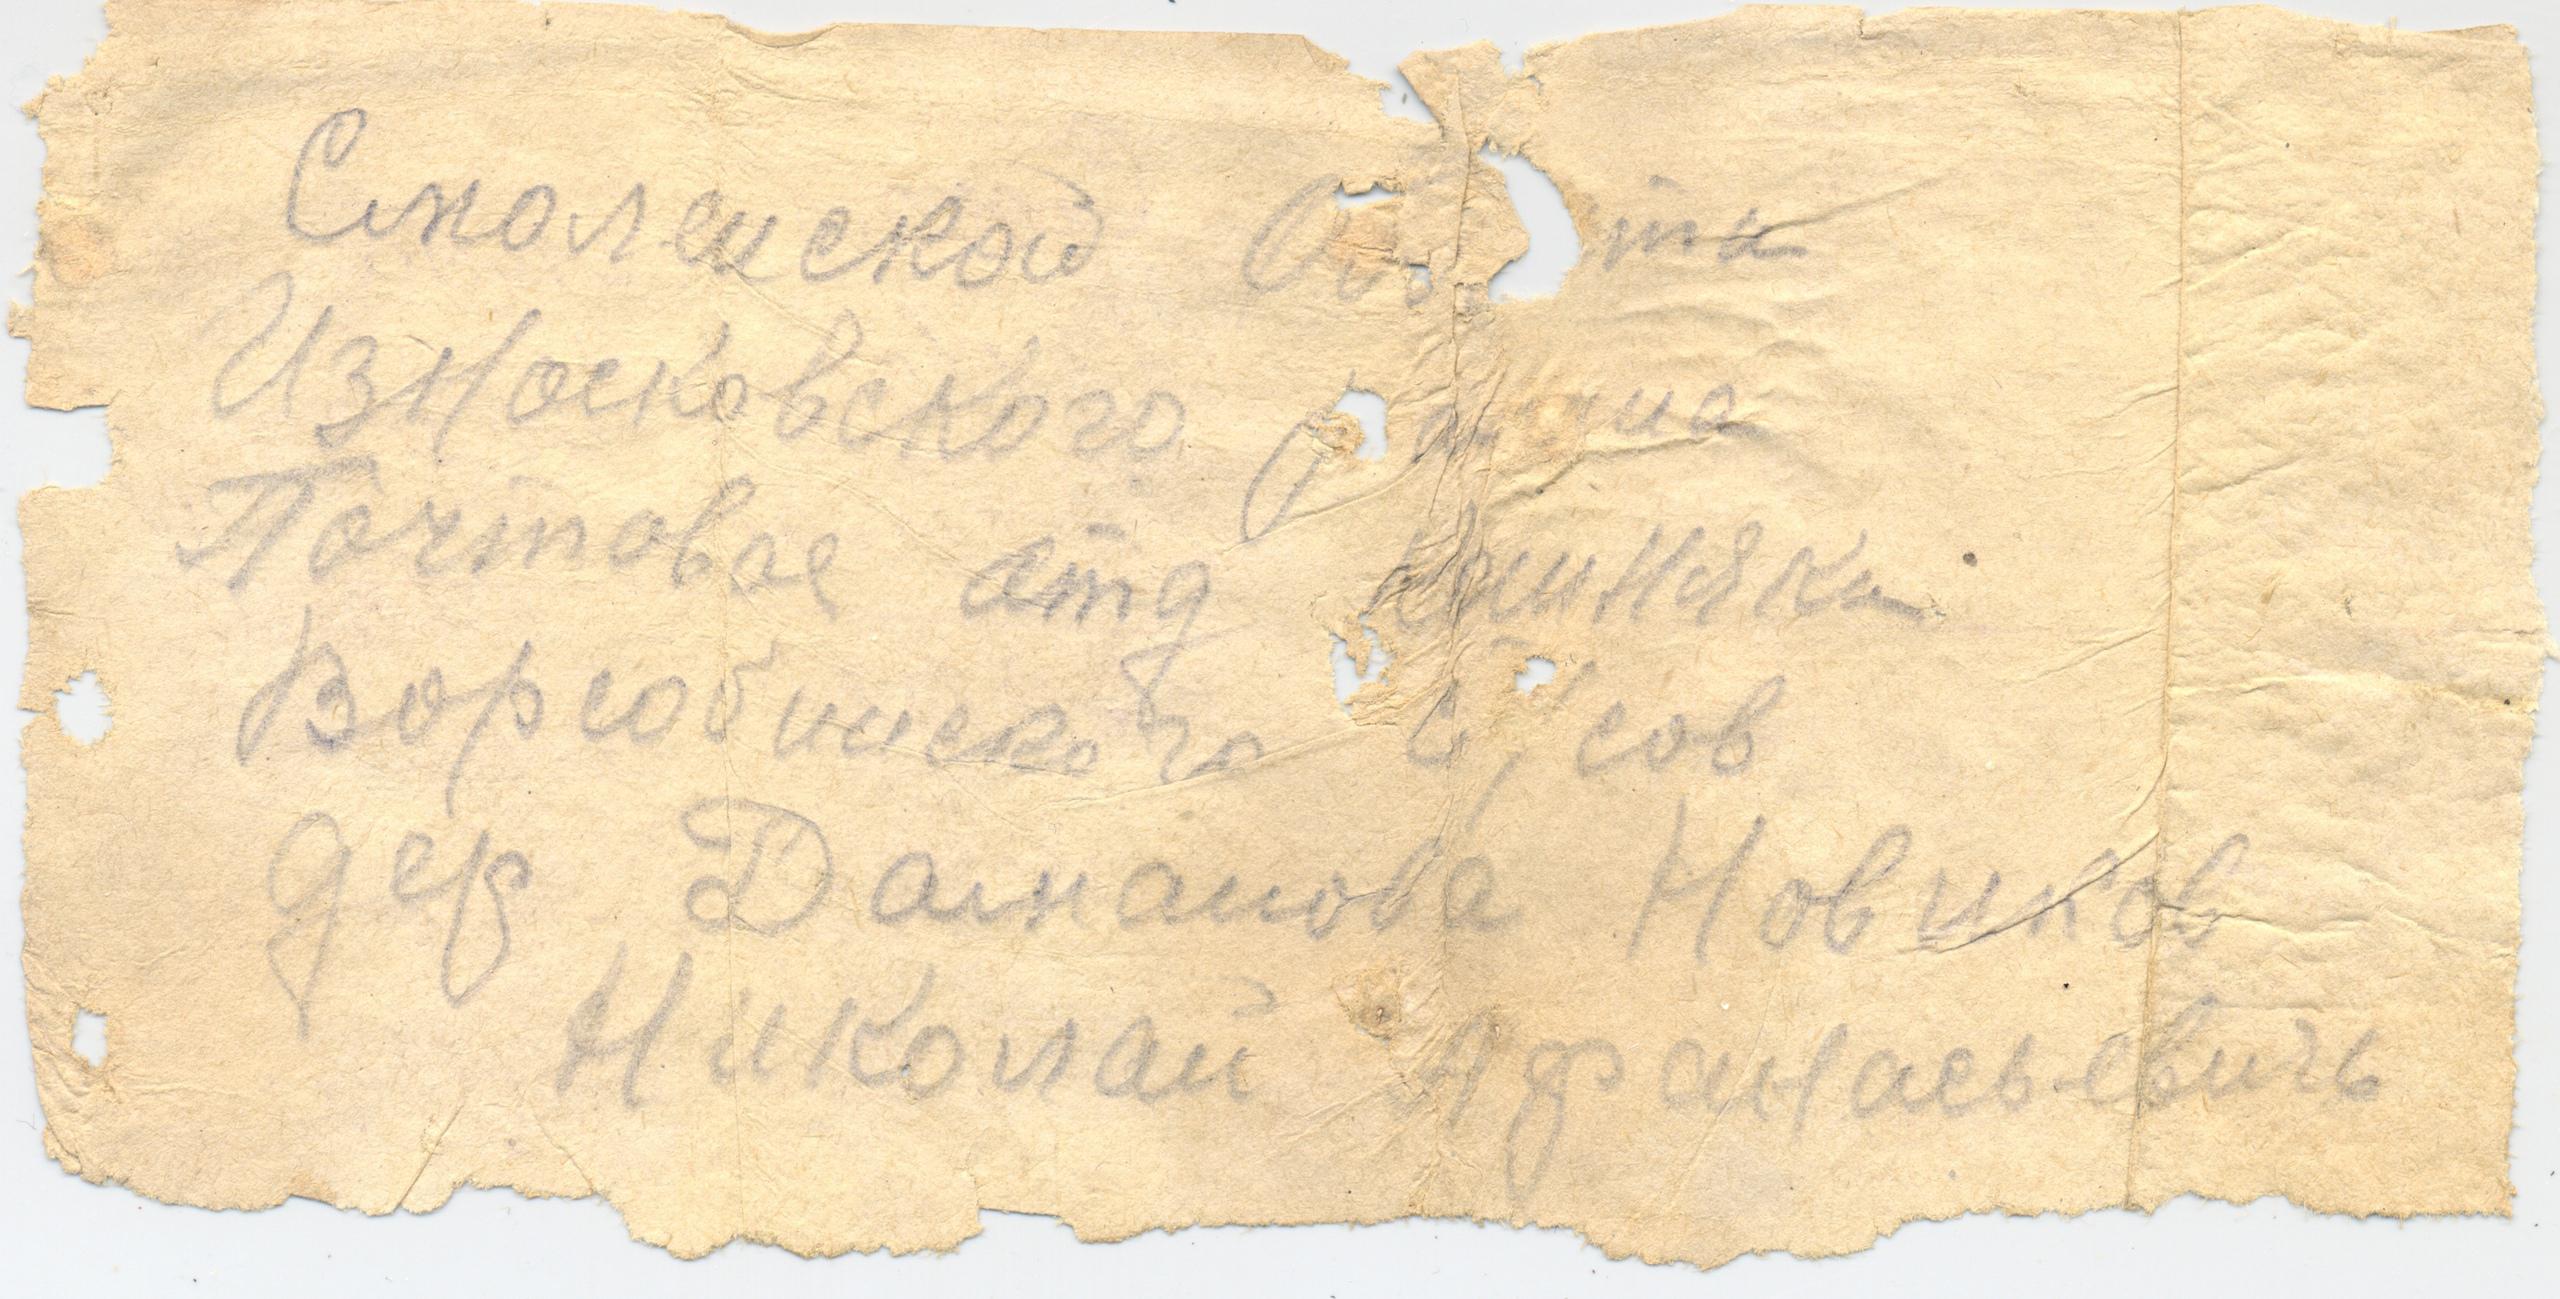 Смоленской Области
Износковского района
Почтовое атд
Ворсобинского С/сов
дер Даманова Новиков
Николай Афанасьевичь